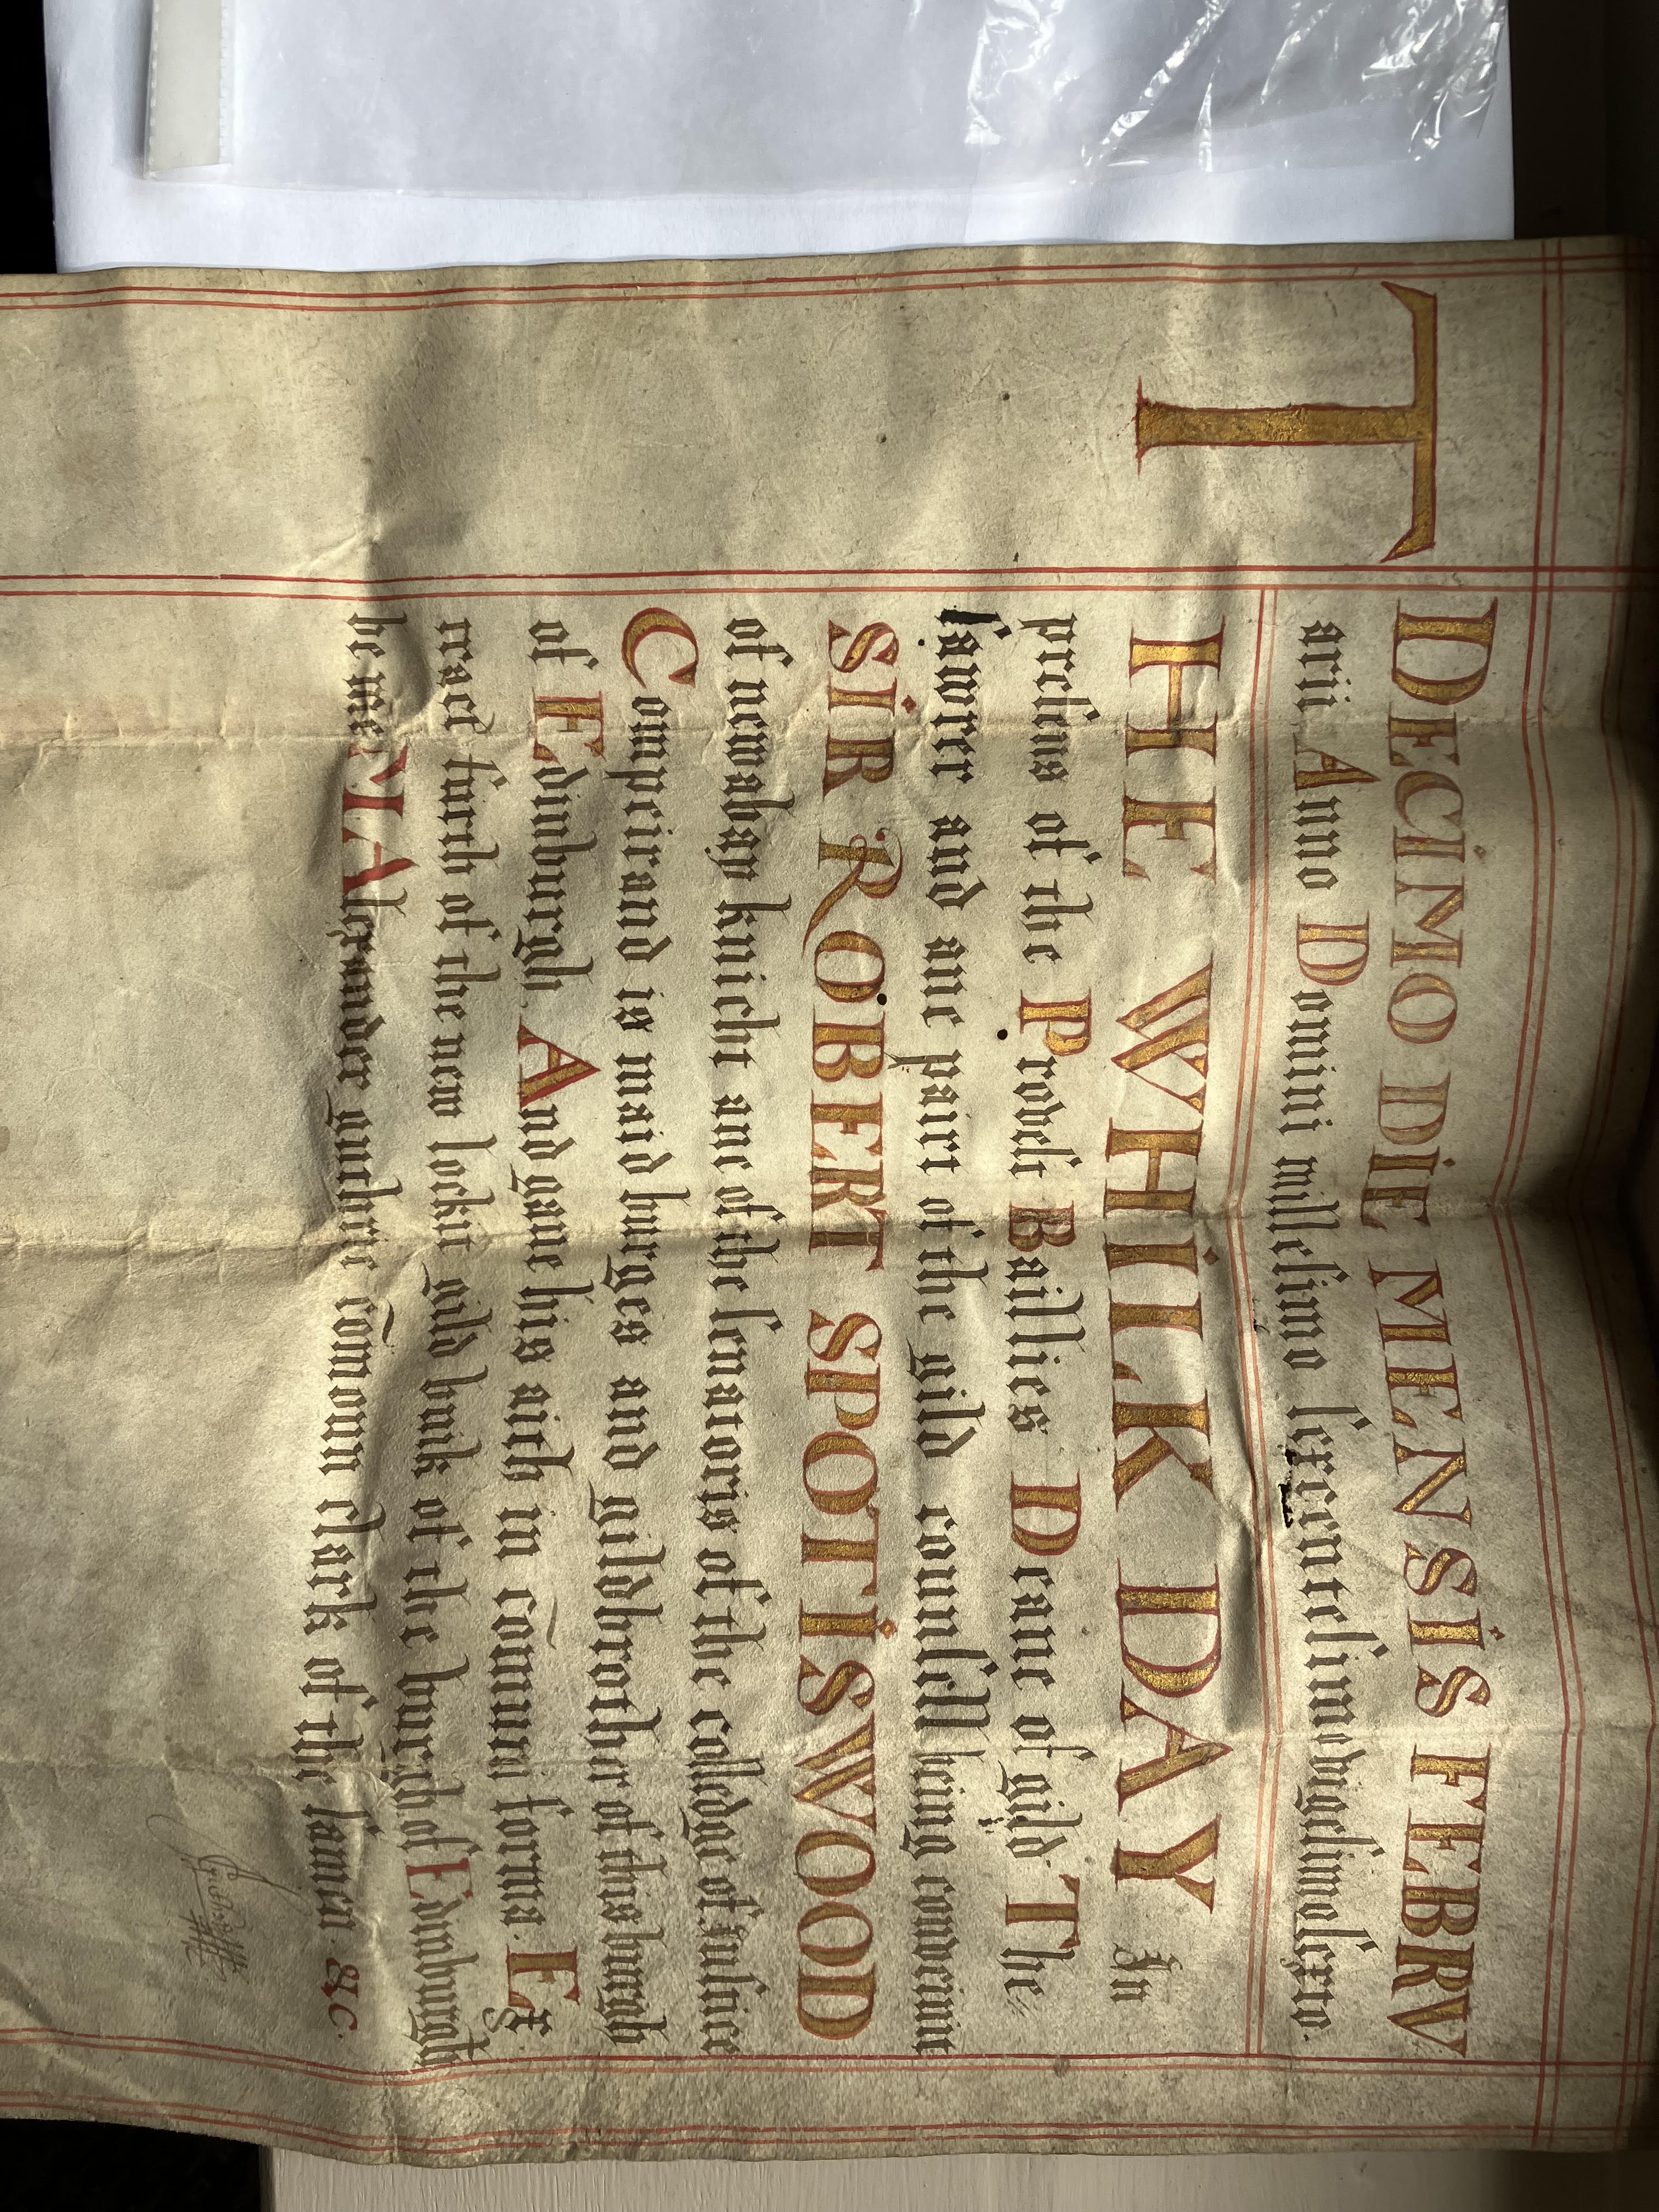 DECIMO DIE MENSIS FEBRV
arii Anno Domini millesimo sexcentesimo vigesimo sexto.
THE WHILK DAY In
presens of the Provest Baillies Deane of gild The
samyer and ane pairt of the gild counsell being convenit
SIR ROBERT SPOTISWOOD
of newabay knicht ane of the senatoris of the colledge of Justice
Compeirand is maid burges and gildbrother of this burgh
of Edinburgh. And gaue his aith in cõmuni forma. Ext
tract furth of the new lockit gild buik of the burgh of Edinburgh
be me Mr Alexander guthrie cõmoun clark of the samen. &c.